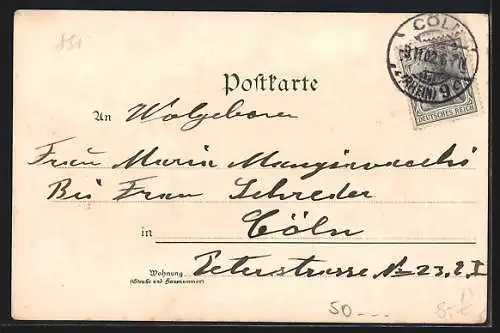 851
CÖLN
9.11.02.6-7N
(RHEIN) 9d
DEUTSCHES REICH
Postkarte
An Wolgeboren
Frau Maria
Bei Frau Schreder
in Cöln
Wohnung Peterstrasse No 23, 2, I
(Straße und Hausnummer)
50